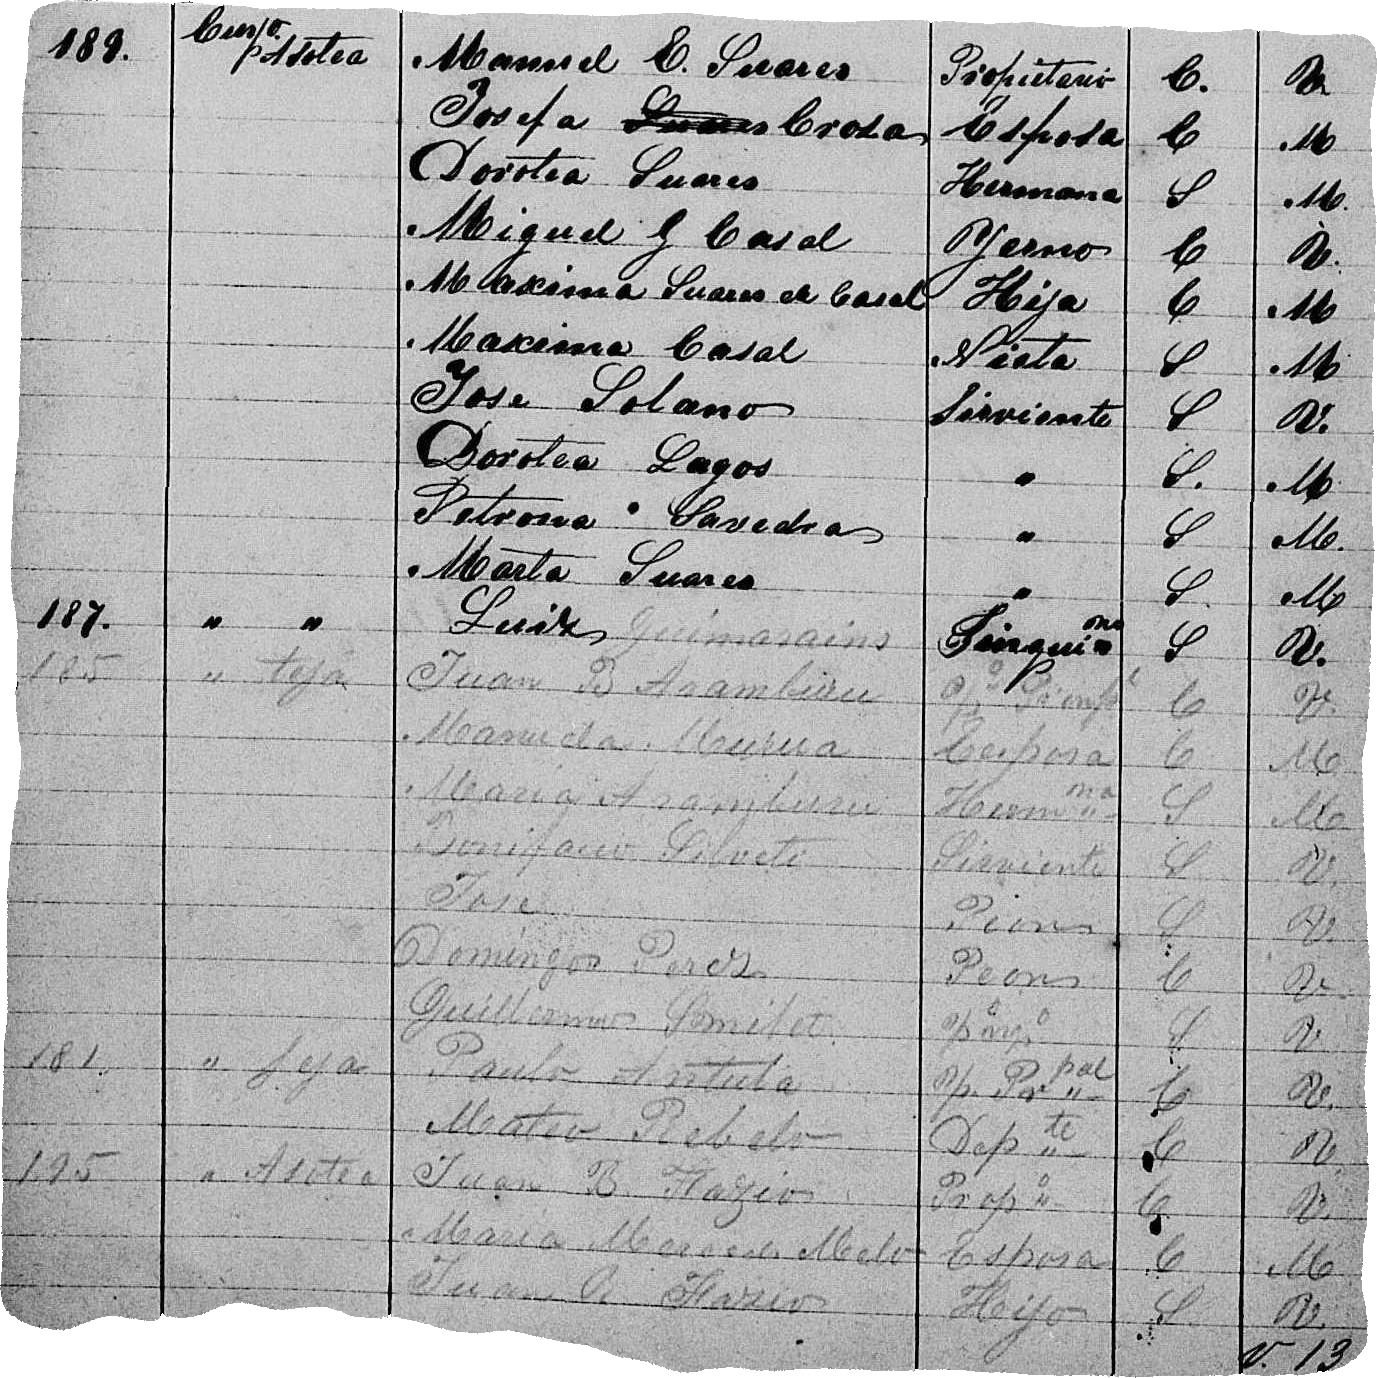 189. Cuerpo Asotea Manuel E. Suares Propietario C. V.
Josefa Crosa Esposa C M
Dorotea Suares Hermana S M.
Miguel G Casal Yerno C V.
Maxima Suares de Casal Hija C M
Maxima Casal Nieta S M
Jose Solano Sirviente S V.
Dorotea Lagos " S. M
Petrona Savedra " S M.
Marta Suares " S. M
187. " " Luiz Guimarains S V.
185 " teja Juan B Aramburu C V.
Manuela Murua Esposa C M
Maria Aramburu Herm na S M
Bonifacio Silveti Sirviente S V.
Jose Pion S V.
Domingo Perez Peon C V.
Guillermo S V
181. " Paulo C V.
Mateo Rebelo Dep te C V.
195 " Asotea Juan B. Flazio Prop o C V.
Maria Mercedes Melo Esposa C M
Juan Flazio Hijo S. V.
V. 13